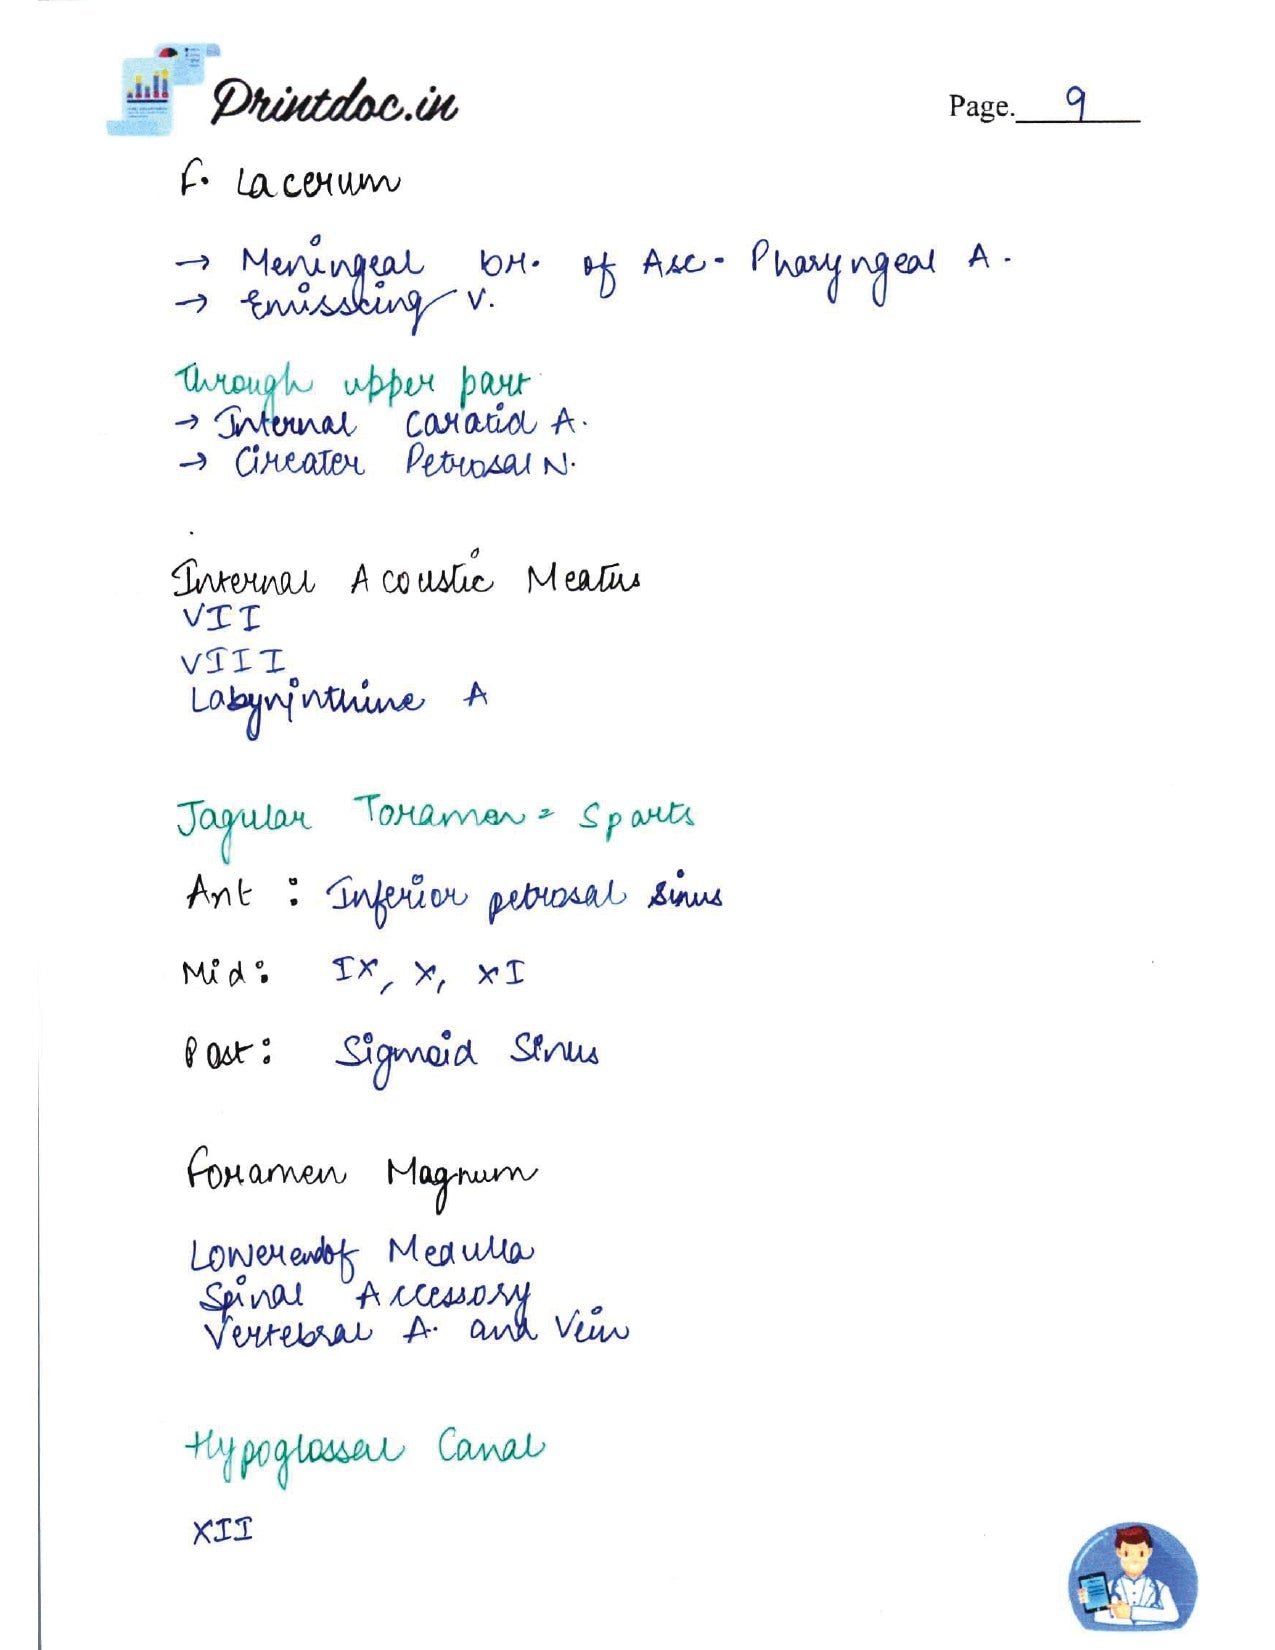 Printdoc.in
Page. 9
F. Lacerum
→ Meningeal br. of Asc. Pharyngeal A.
→ Emisscing V.
Through upper part
→ Internal Caratid A.
→ Greater Petrosal N.
Internal Acoustic Meatus
VII
VIII
Labyrinthine A
Jagular Foramen = 3 parts
Ant : Inferior petrosal sinus
Mid: IX, X, XI
Post: Sigmoid Sinus
Foramen Magnum
Lower end of Medulla
Spinal Accessory
Vertebral A. and Vein
Hypoglossal Canal
XII